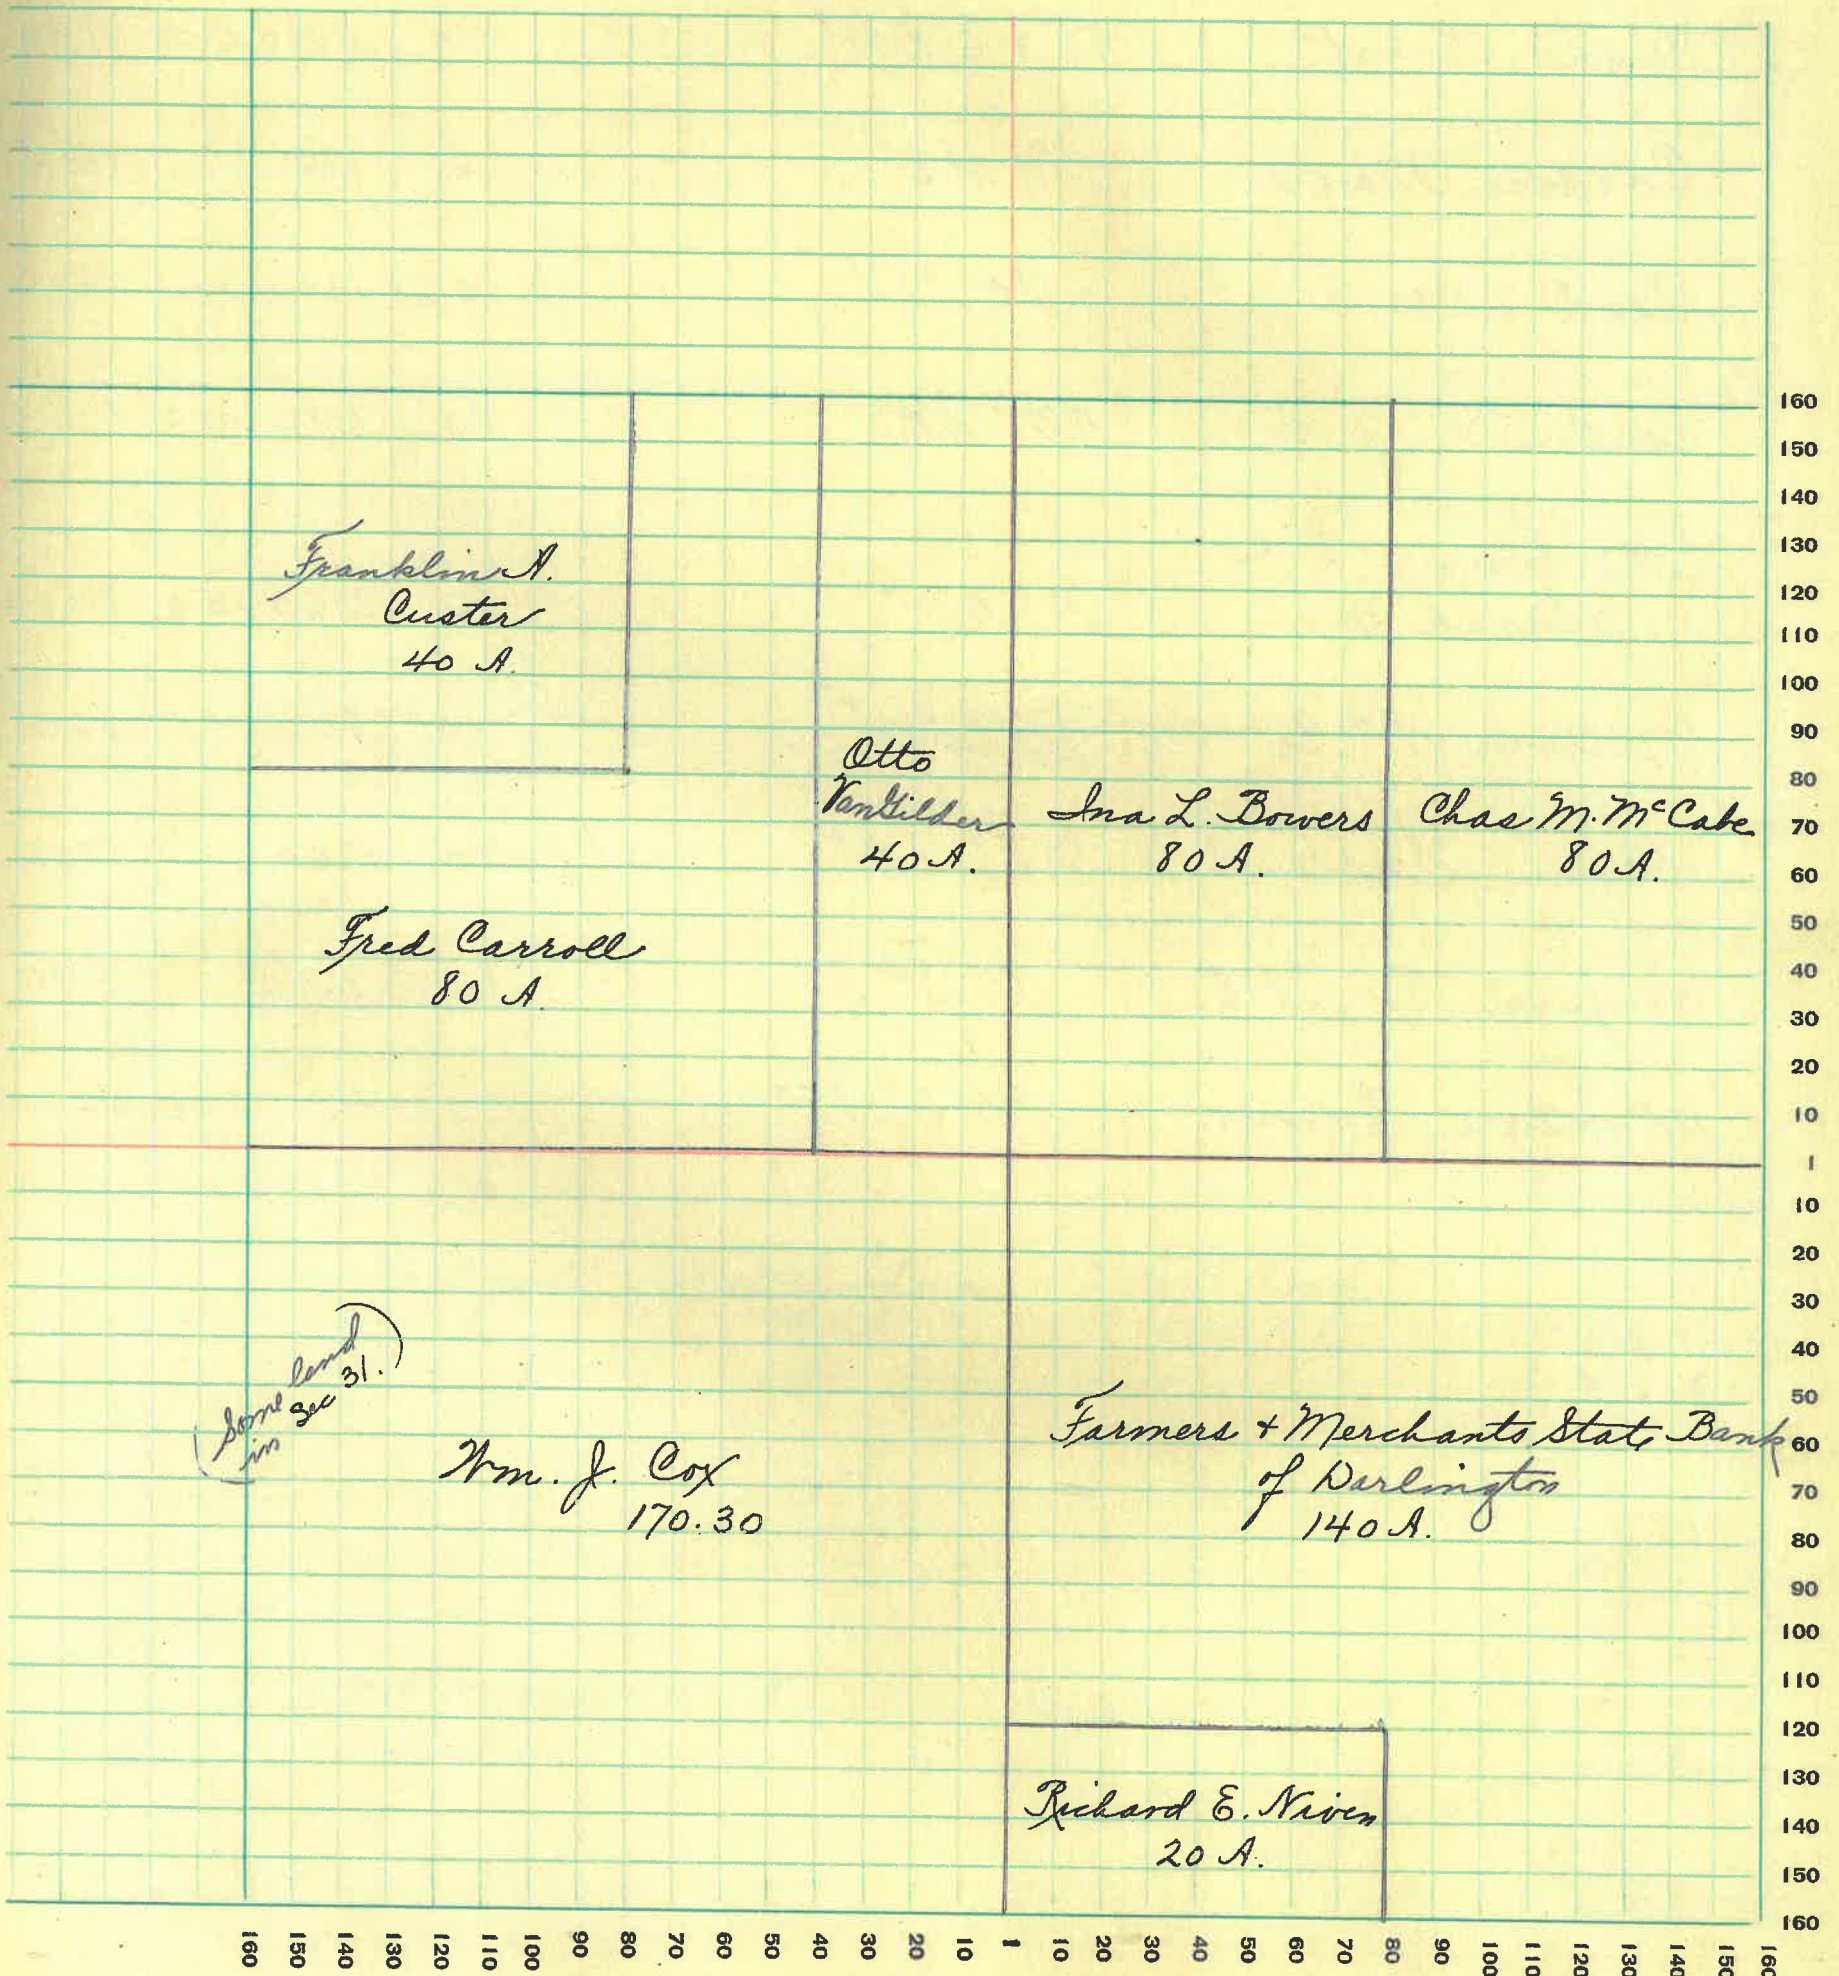 Franklin A.
Custer
40 A.
Otto
VanGilder
40 A.
Ina L. Bowers
80 A.
Chas M. McCabe
80 A.
Fred Carroll
80 A.
(Some land
in Sec 31.)
Wm. J. Cox
170.30
Farmers + Merchants State Bank
of Darlington
140 A.
Richard E. Niven
20 A.
160
150
140
130
120
110
100
90
80
70
60
50
40
30
20
10
1
10
20
30
40
50
60
70
80
90
100
110
120
130
140
150
160
160 150 140 130 120 110 100 90 80 70 60 50 40 30 20 10 1 10 20 30 40 50 60 70 80 90 100 110 120 130 140 150 160